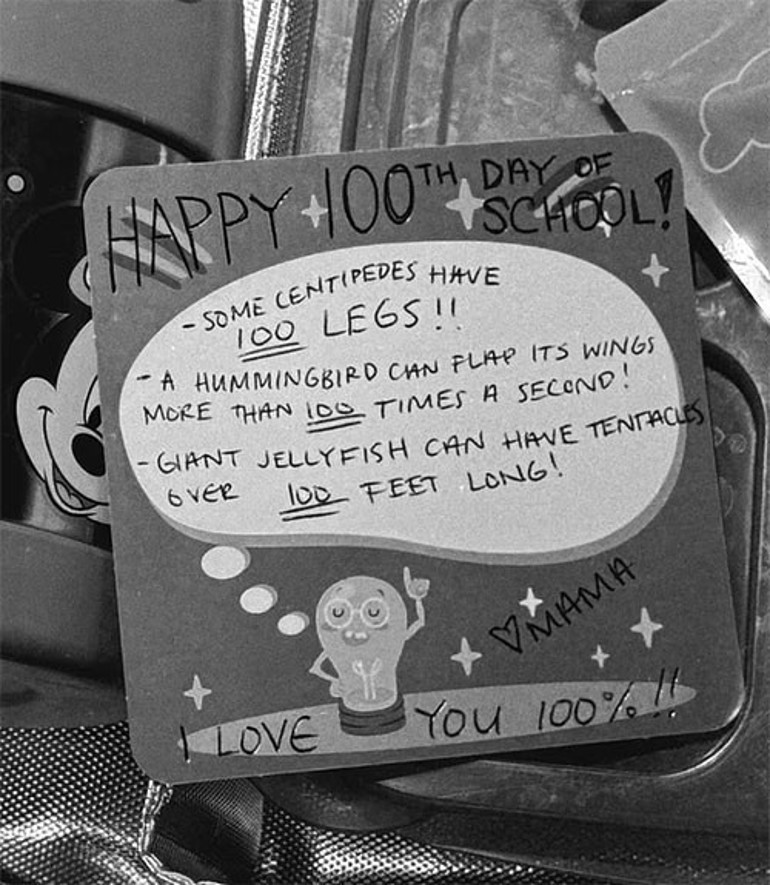 HAPPY 100TH DAY OF
SCHOOL!
- SOME CENTIPEDES HAVE
100 LEGS!!
- A HUMMINGBIRD CAN FLAP ITS WINGS
MORE THAN 100 TIMES A SECOND!
- GIANT JELLYFISH CAN HAVE TENTACLES
OVER 100 FEET LONG!
♡MAMA
I LOVE YOU 100%!!